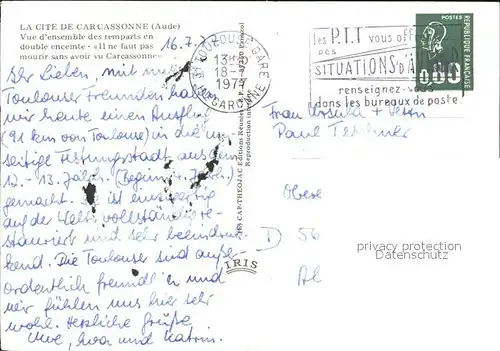 LA CITE DE CARCASSONNE (Aude)
Vue d'ensemble des remparts en
double enceinte - «Il ne faut pas
mourir sans avoir vu Carcassonne»
16.7.77
Ihr Lieben, mit unseren
Toulouser Freunden haben
wir heute einen Ausflug
(91 km von Toulouse) in die
seitige Festungsstadt aus dem
12.-13. Jahrh. (Beginn Jahrh.)
gemacht. Sie ist einzig
auf der Welt, vollständig re-
stauriert und sehr beeindruk-
kend. Die Toulouser sind auße-
ordentlich freundlich und
wir fühlen uns hier sehr
wohl. Herzliche Grüße,
Uwe, und Katrin.
31 TOULOUSE GARE
13H
18-7
1977
HTE GARONNE
les P.T.T vous off
DES
SITUATIONS d'A
renseignez-vous
dans les bureaux de poste
POSTES
REPUBLIQUE FRANÇAISE
0,00
CAP-THEOJAC
Reproduction
IRIS
Frau Ursula +
Paul
Obere
D 56
privacy protection
Datenschutz